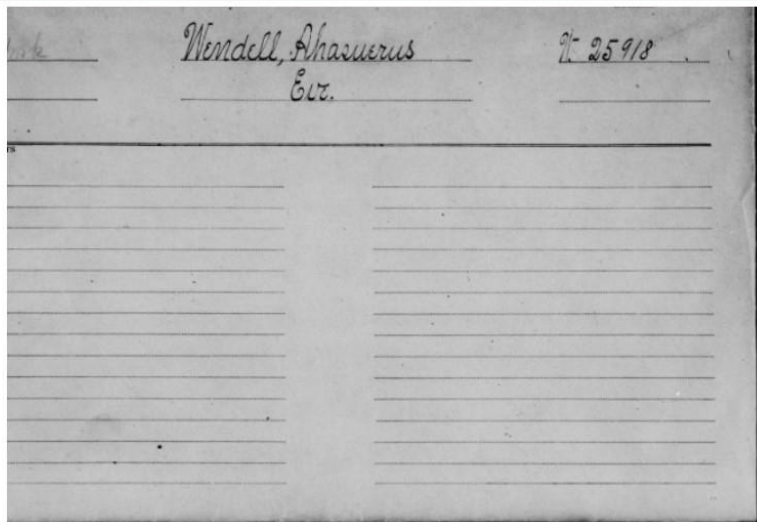 Wendell, Ahasuerus W. 25918
Eve.